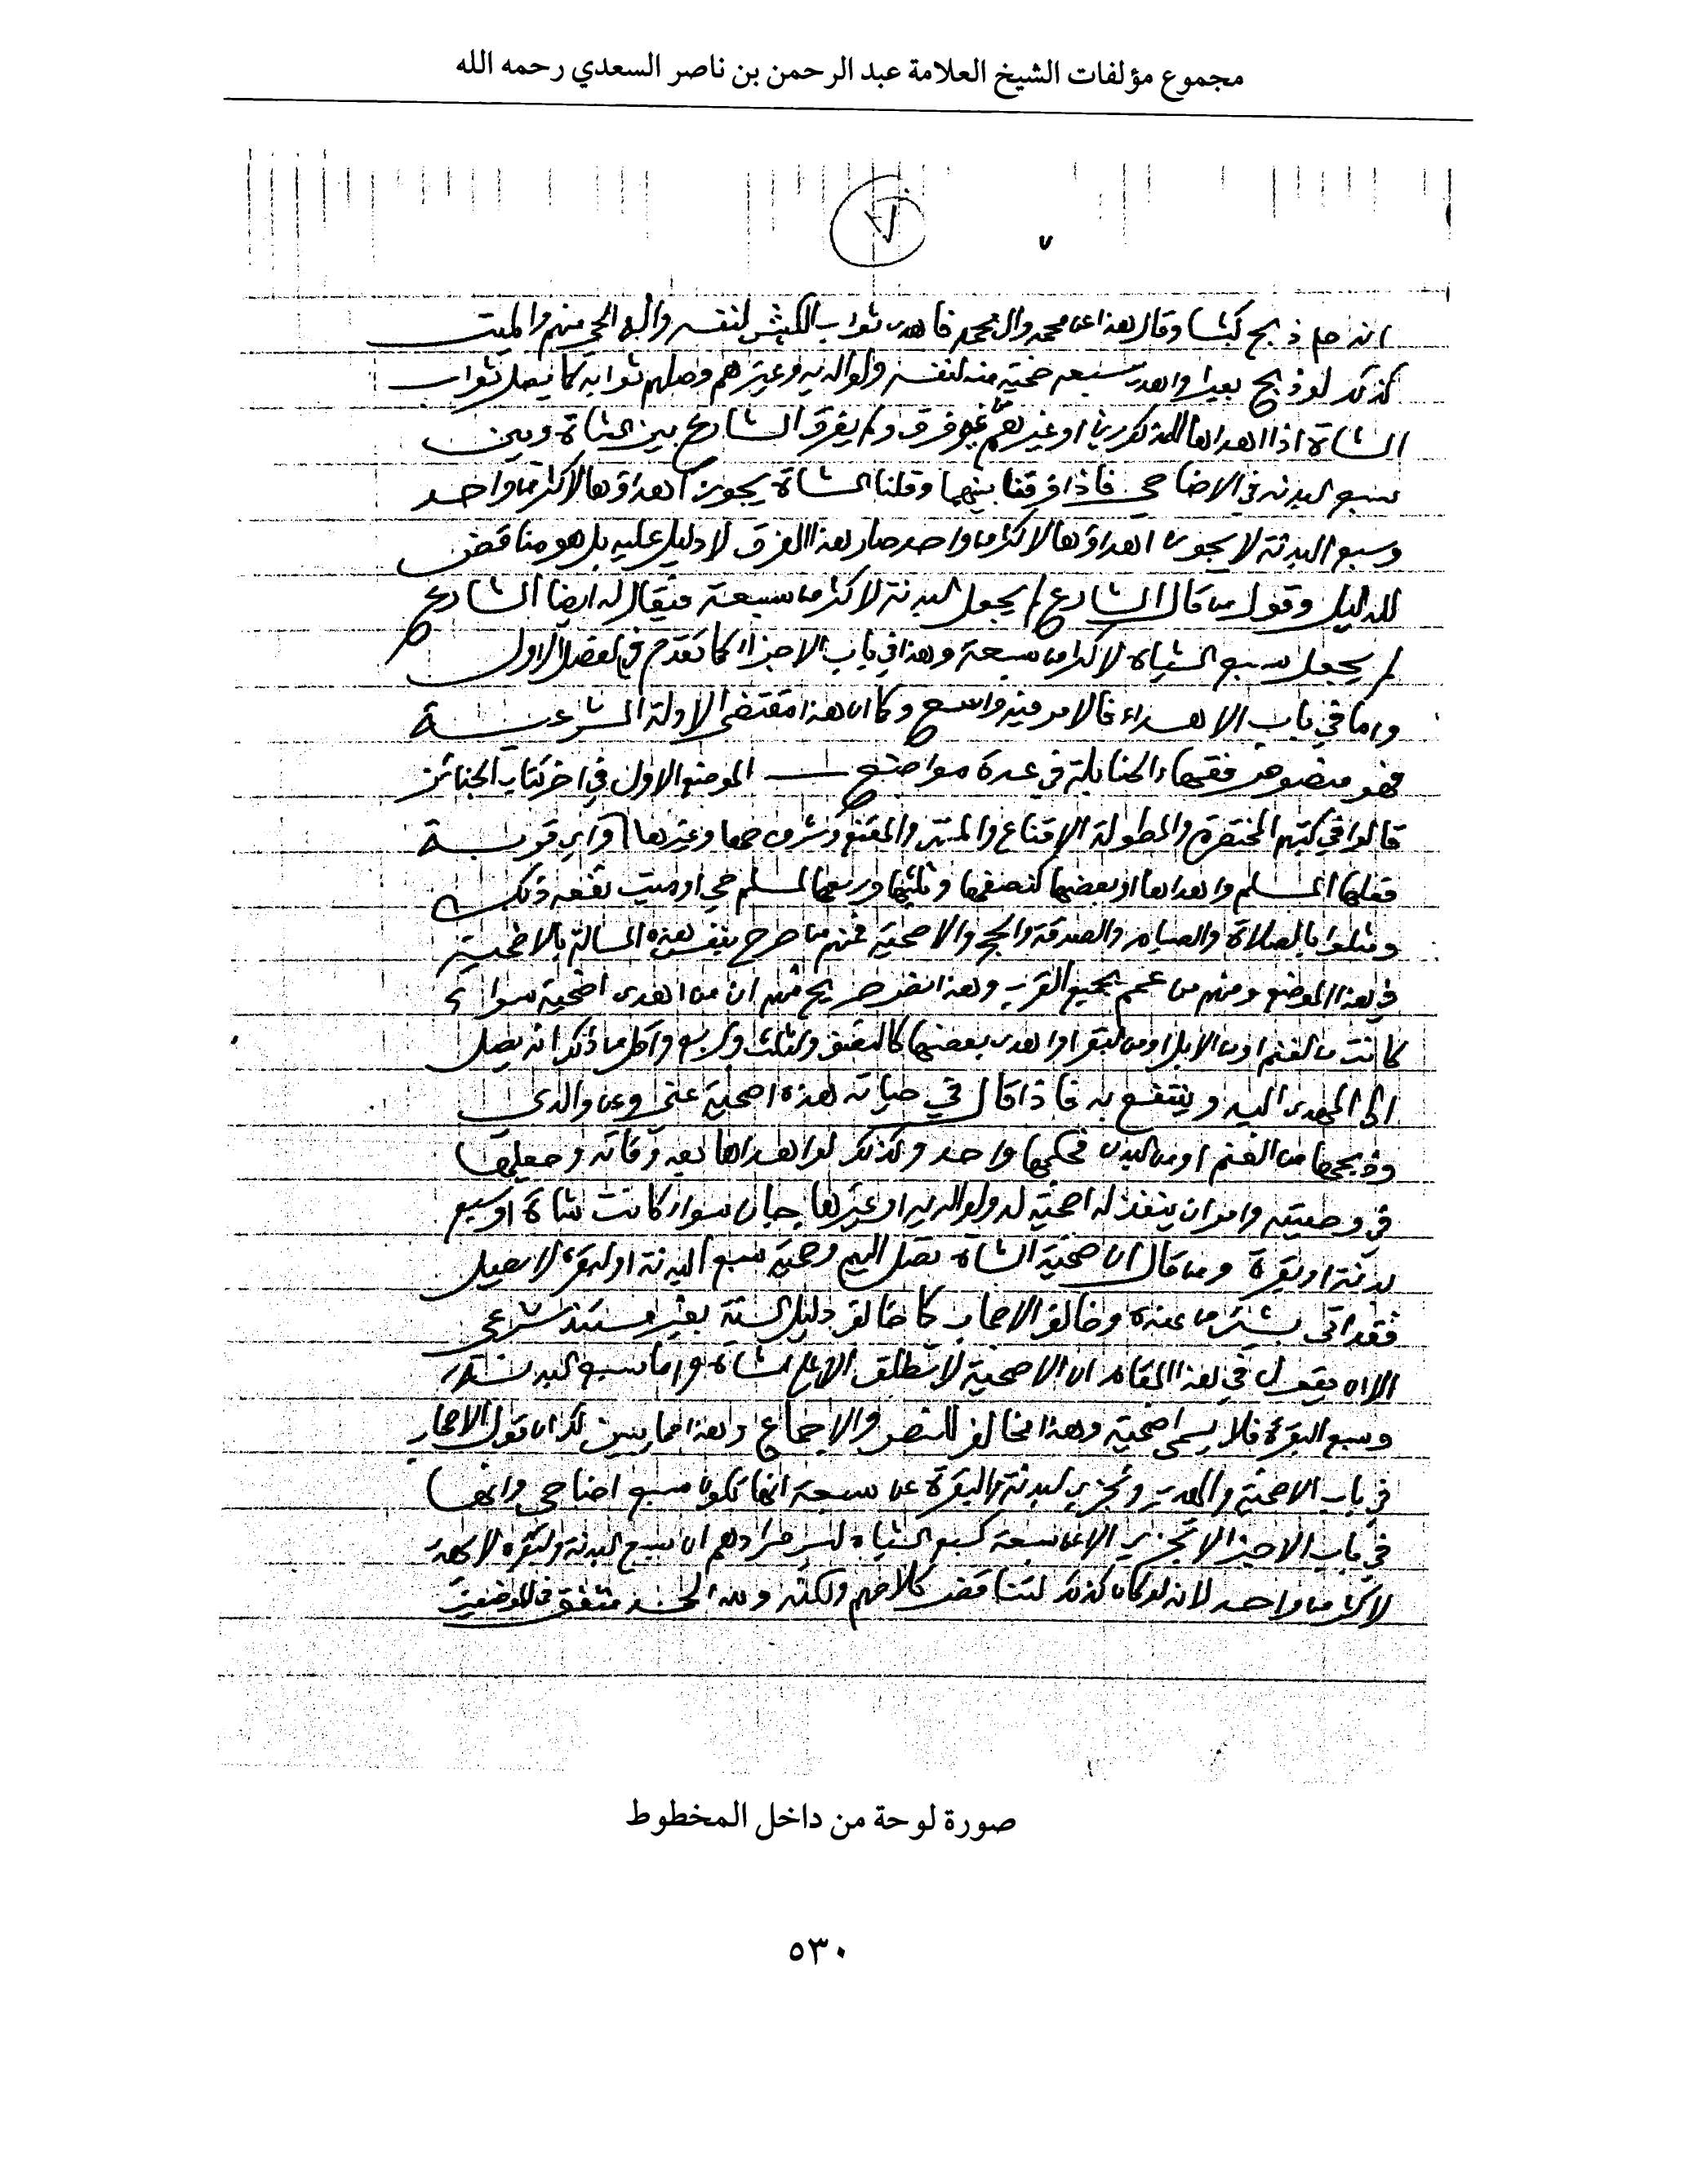 مجموع مؤلفات الشيخ العلامة عبد الرحمن بن ناصر السعدي رحمه الله
٧
٧
انه صلم ذبح كبشا وقال هذا عن محمد وال محمد فاهدى ثواب الكبش لنفسه واله الحي منهم والميت
كذلك لو ذبح بعيرا واهدى سبعه ضحية منه لنفسه ولوالديه وغيرهم وصلهم ثوابه كما يصل ثواب
الشاة اذا اهداها للمذكورين او غيرهم من غير فرق ولم يفرق الشارع بين الشاة وبين
سبع البدنة في الاضاحي فاذا فرقنا بينهما وقلنا الشاة يجوز اهداؤها لاكثر من واحد
وسبع البدنة لا يجوز اهداؤها لاكثر من واحد صار هذا الفرق لا دليل عليه بل هو مناقض
للدليل وقول من قال الشارع لم يجعل البدنة لاكثر من سبعة فيقال له ايضا الشارع
لم يجعل سبع الشياه لاكثر من سبعة وهذا في باب الاجزاء كما تقدم في الفصل الاول
واما في باب الاهداء فالامر فيه واسع وكما ان هذا مقتضى الادلة الشرعية
فهو منصوص فقهاء الحنابلة في عدة مواضع الموضع الاول في اخر كتاب الجنائز
قالوا في كتبهم المختصرة والمطولة الاقناع والمنتهى والمقنع وشروحها وغيرها واي قربة
فعلها المسلم واهداها او بعضها كنصفها وثلثها وربعها لمسلم حي او ميت نفعه ذلك
ومثلوا بالصلاة والصيام والصدقة والحج والاضحية فمنهم من صرح بنفس هذه المسالة بالاضحية
في هذا الموضع ومنهم من عمم بجميع القرب وهذا نص صريح منهم ان من اهدى اضحية سواء
كانت من الغنم او من الابل او من البقر او اهدى بعضها كالنصف والثلث والربع واقل مما ذكر انه يصل
الى المهدى اليه وينتفع به فاذا قال في حياته هذه اضحية عني وعن والدي
وذبحها من الغنم او من البدن فحكمها واحد وكذلك لو اهداها بعد وفاته وجعلها
في وصيته وامر ان ينفذ له اضحية له ولوالديه او غيرها جاز سواء كانت شاة او سبع
بدنة او بقرة ومن قال ان ضحية الشاة تصل اليهم وضحية سبع البدنة او البقرة لا تصل
فقد اتى بشيء من عنده وخالف الاصحاب كما خالف دليل السنة بغير مستند شرعي
الا ان يقول في هذا المقام ان الاضحية لا تطلق الا على الشاة واما سبع البدنة
وسبع البقرة فلا يسمى اضحية وهذا مخالف للنص والاجماع وهذا مما يبين لك ان قول الاصحاب
في باب الاضحية والهدي وتجزي البدنة والبقرة عن سبعة انها تكون سبع اضاحي وانها
في باب الاجزا لا تجزي الا عن سبعة كسبع الشياه ليس مرادهم ان سبع البدنة والبقرة لا يهدى
لاكثر من واحد لانه لو كان كذلك لتناقض كلامهم ولكنه ولله الحمد متفق في الموضعين
صورة لوحة من داخل المخطوط
٥٣٠